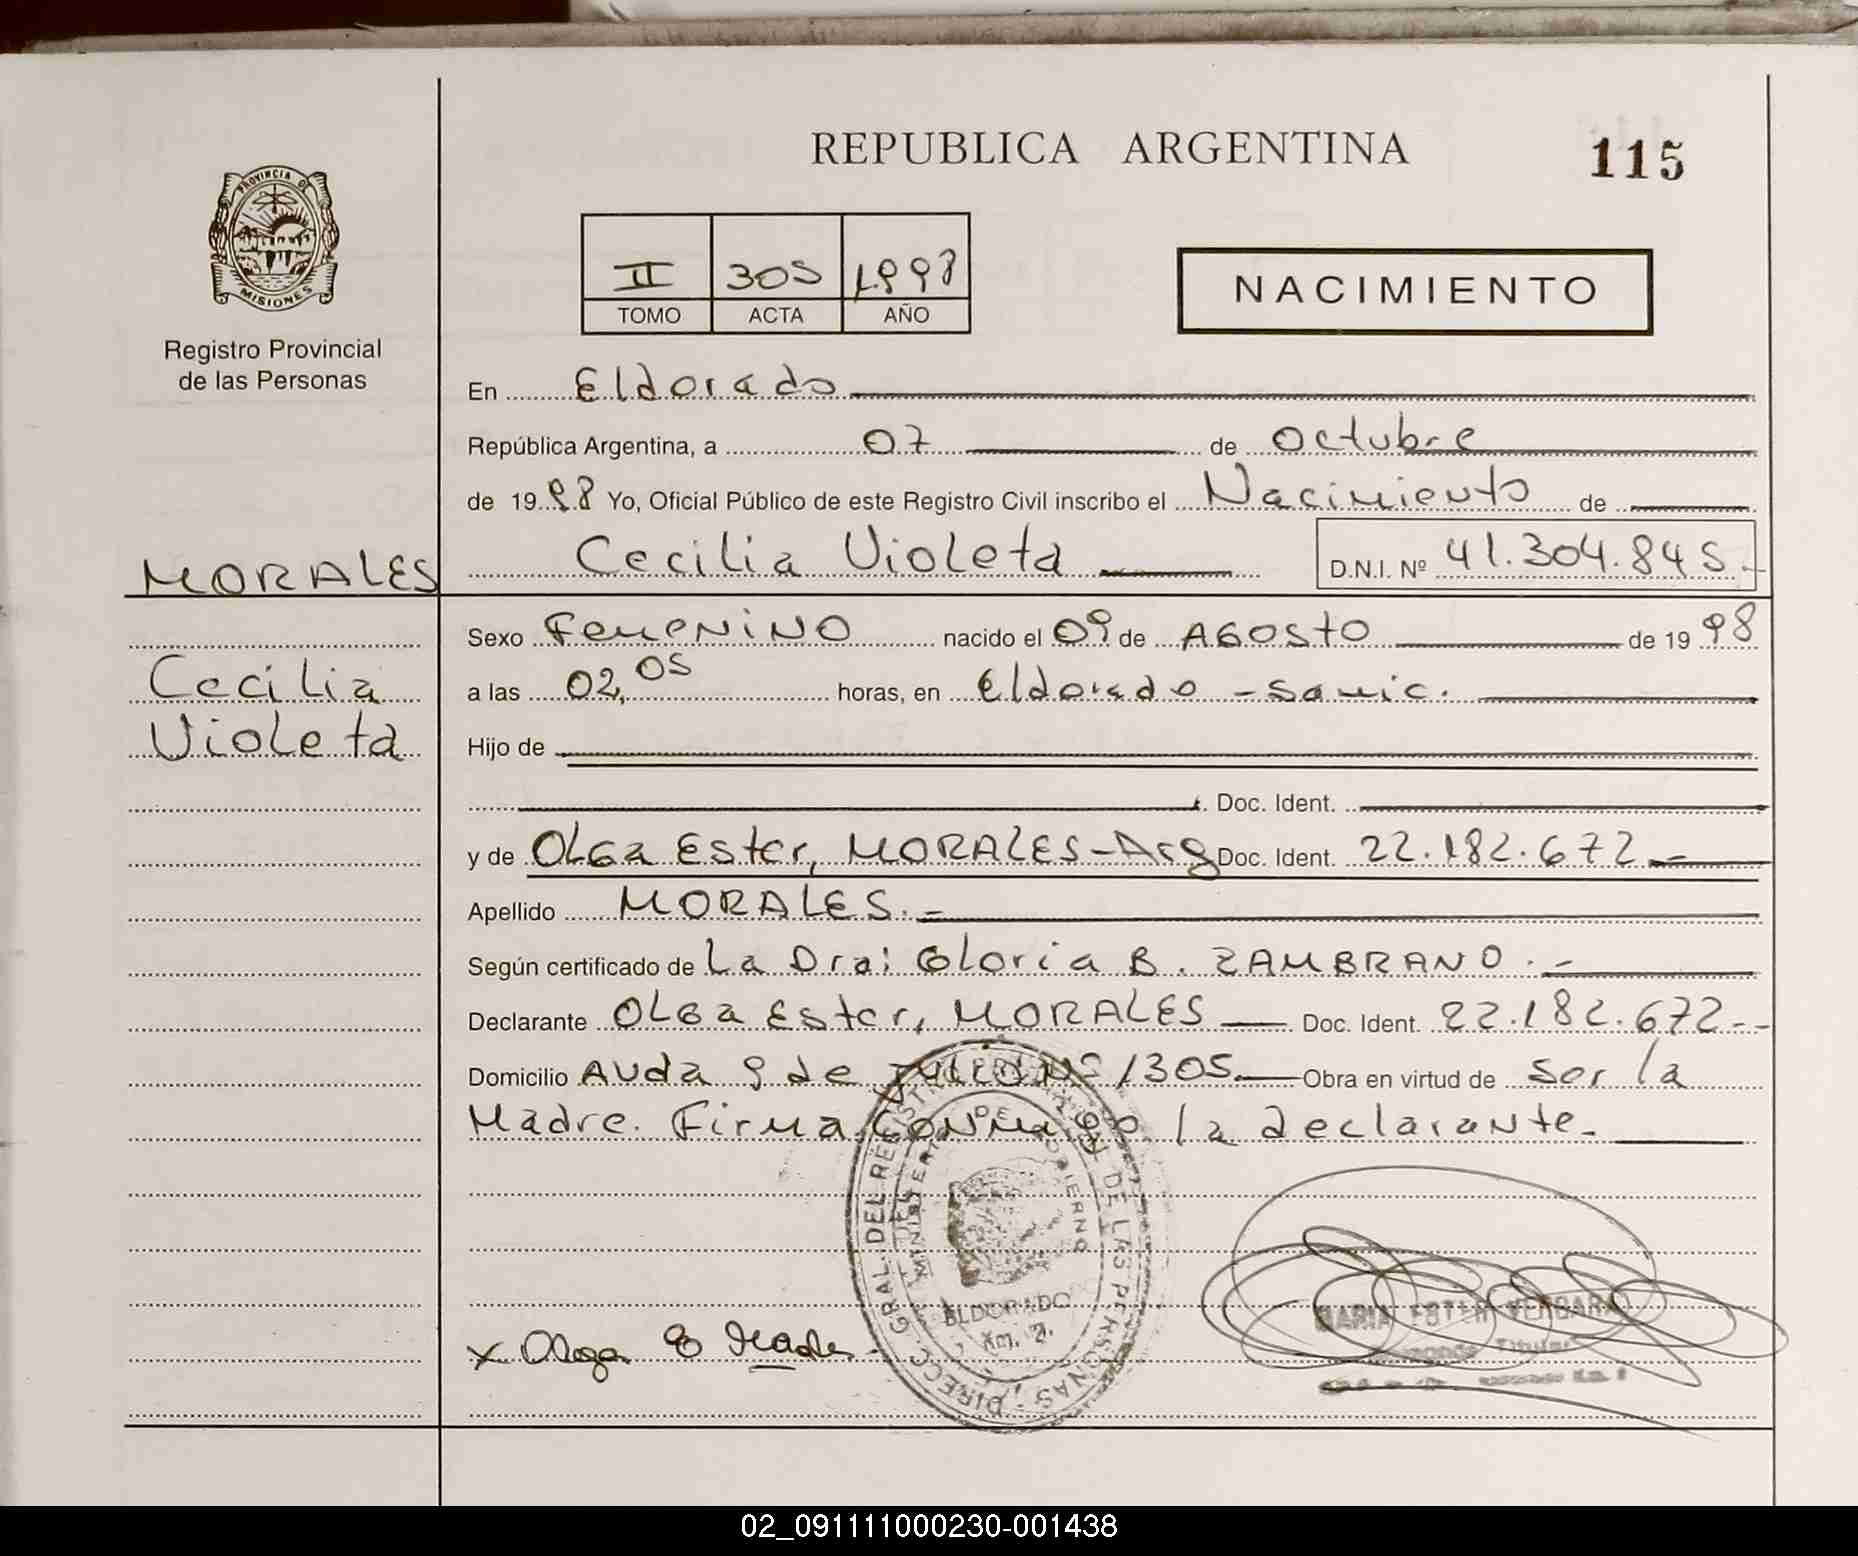 REPUBLICA ARGENTINA
115
PROVINCIA DE
MISIONES
Registro Provincial
de las Personas
II 305 1998
TOMO ACTA AÑO
NACIMIENTO
En Eldorado
República Argentina, a 07 de Octubre
de 1998 Yo, Oficial Público de este Registro Civil inscribo el Nacimiento de
MORALES
Cecilia Violeta D.N.I. Nº 41.304.845.-
Sexo Femenino nacido el 09 de Agosto de 1998
Cecilia
a las 02,05 horas, en Eldorado - Samic.
Violeta
Hijo de
Doc. Ident.
y de Olga Ester, MORALES-Arg Doc. Ident. 22.182.672.-
Apellido MORALES.-
Según certificado de La Dra: Gloria B. ZAMBRANO.-
Declarante Olga Ester, MORALES Doc. Ident. 22.182.672.-
Domicilio Avda 9 de Julio Nº 1305. Obra en virtud de Ser la
Madre. Firma Conmigo la declarante.
DIRECC. GRAL. DEL REGISTRO DE LAS PERSONAS
MINISTERIO DE GOBIERNO
ELDORADO
Km. 2.
MARIA ESTER
Titular
x Olga E
02_091111000230-001438